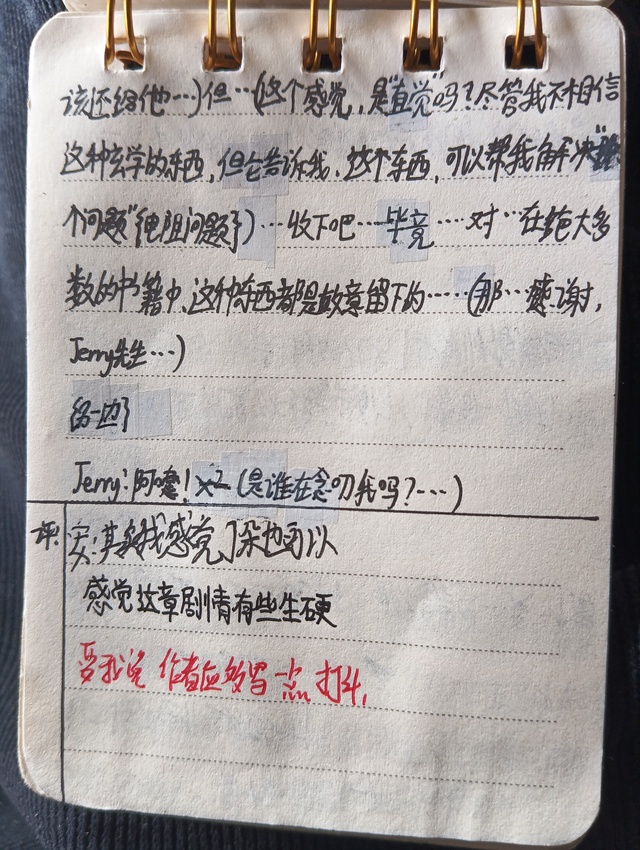 该还给他…)但…(这个感觉,是"直觉"吗?尽管我不相信
这种玄学的东西,但它告诉我,这个东西,可以帮我解决"
个问题"{电阻问题})…收下吧…毕竟…对…在绝大多
数的书籍中,这种东西都是故意留下的……(那…感谢,
Jerry先生…)
{另一边}
Jerry:阿嚏!x2(是谁在念叨我吗?…)
评:
其实我感觉 也可以
感觉这章剧情有些生硬
要我说 作者应多写一点打斗,